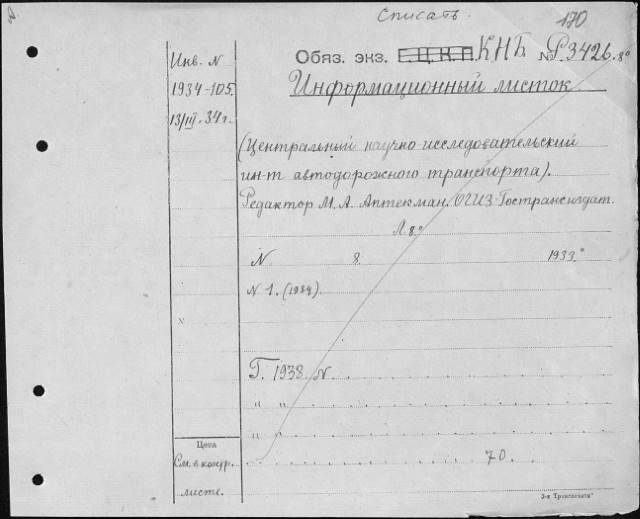 Списать.
170
Инв. N
1934-105.
13/III.34г.
Обяз. экз. Г.Ц.К.П. КНБ № Р3426.8°
Информационный листок.
(Центральный научно исследовательский
ин-т автодорожного транспорта).
Редактор М. А. Аптекман. ОГИЗ-Гострансиздат.
Л 8°
N 8 1933°
N 1. (1934).
x
Г. 1938. N
" "
" "
Цена
См. в контр.
листе.
70.
3-я Транспечати"